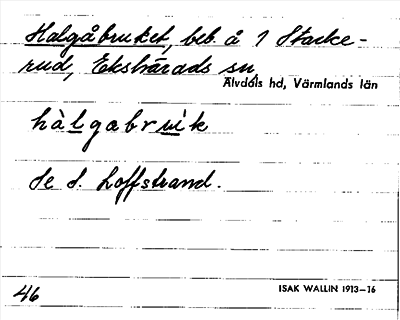 Halgåbruket, beb. å 1 Stacke-
rud, Ekshärads sn,
Älvdals hd, Värmlands län
hàlgabruik
Se S. Loffstrand.
46
ISAK WALLIN 1913–16